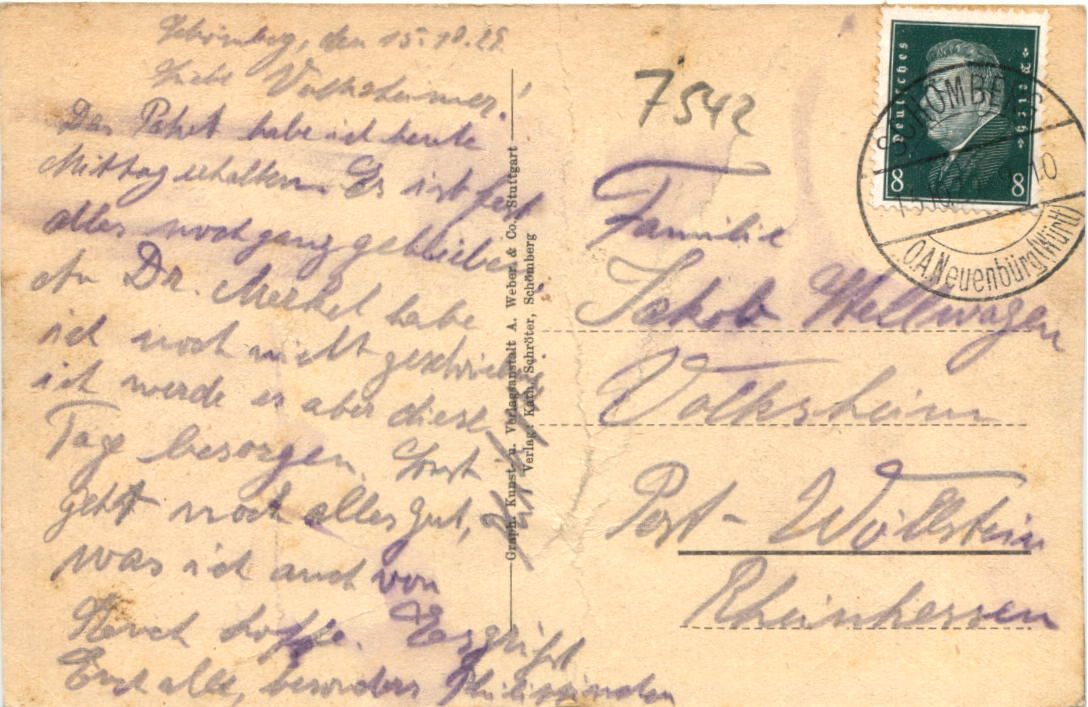 Schömberg, den 15.10.29.
Liebe Volksheimer!
Das Paket habe ich heute
Mittag erhalten. Es ist fast
alles noch ganz geblieben.
An Dr. Merkel habe
ich noch nicht geschrieben
ich werde es aber diese
Tage besorgen. Sonst
geht noch alles gut,
was ich auch von
Euch hoffe. Es grüßt
Euch alle, besonders
Graph. Kunst- u. Verlagsanstalt A. Weber & Co., Stuttgart
Verlag: Kath. Schröter, Schömberg
7542
Deutsches Reich
8 8
SCHÖMBERG
O.A.Neuenbürg(Württ)
Familie
Jakob Wellwagen
Volksheim
Post - Wöllstein
Rheinhessen